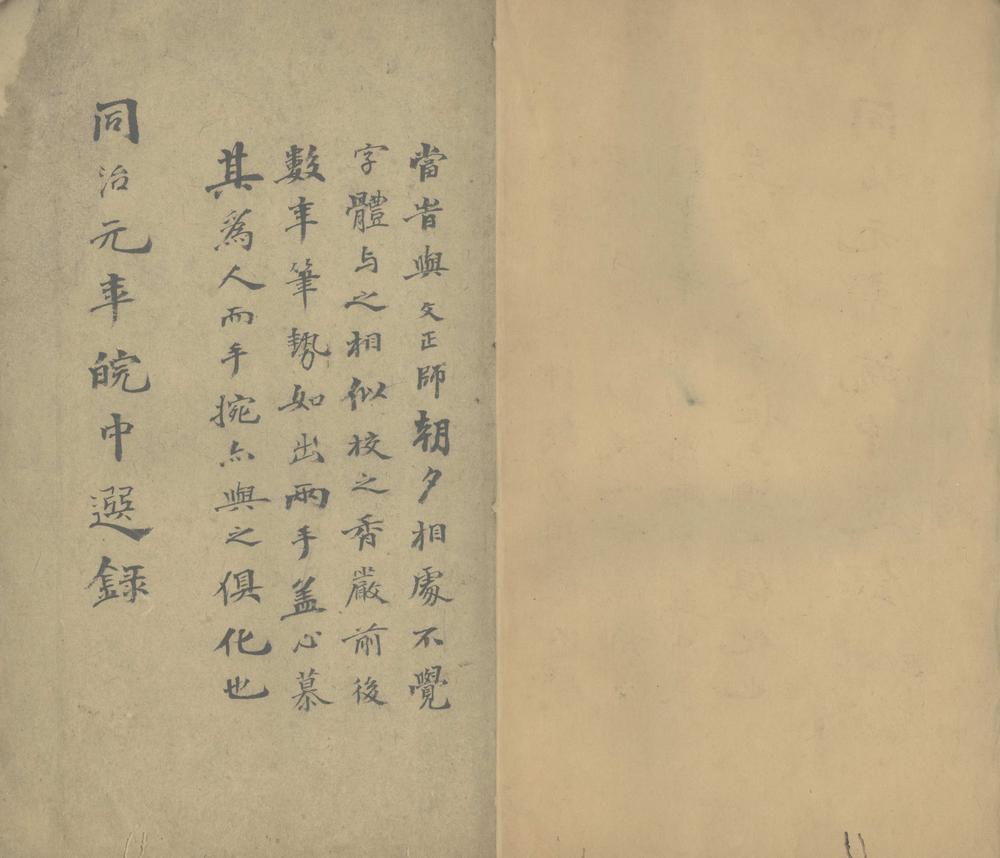 當時與文正師朝夕相處不覺
字體与之相似校之香嚴前後
數年筆勢如出兩手盖心慕
其為人而手捥亦與之俱化也
同治元年皖中選録